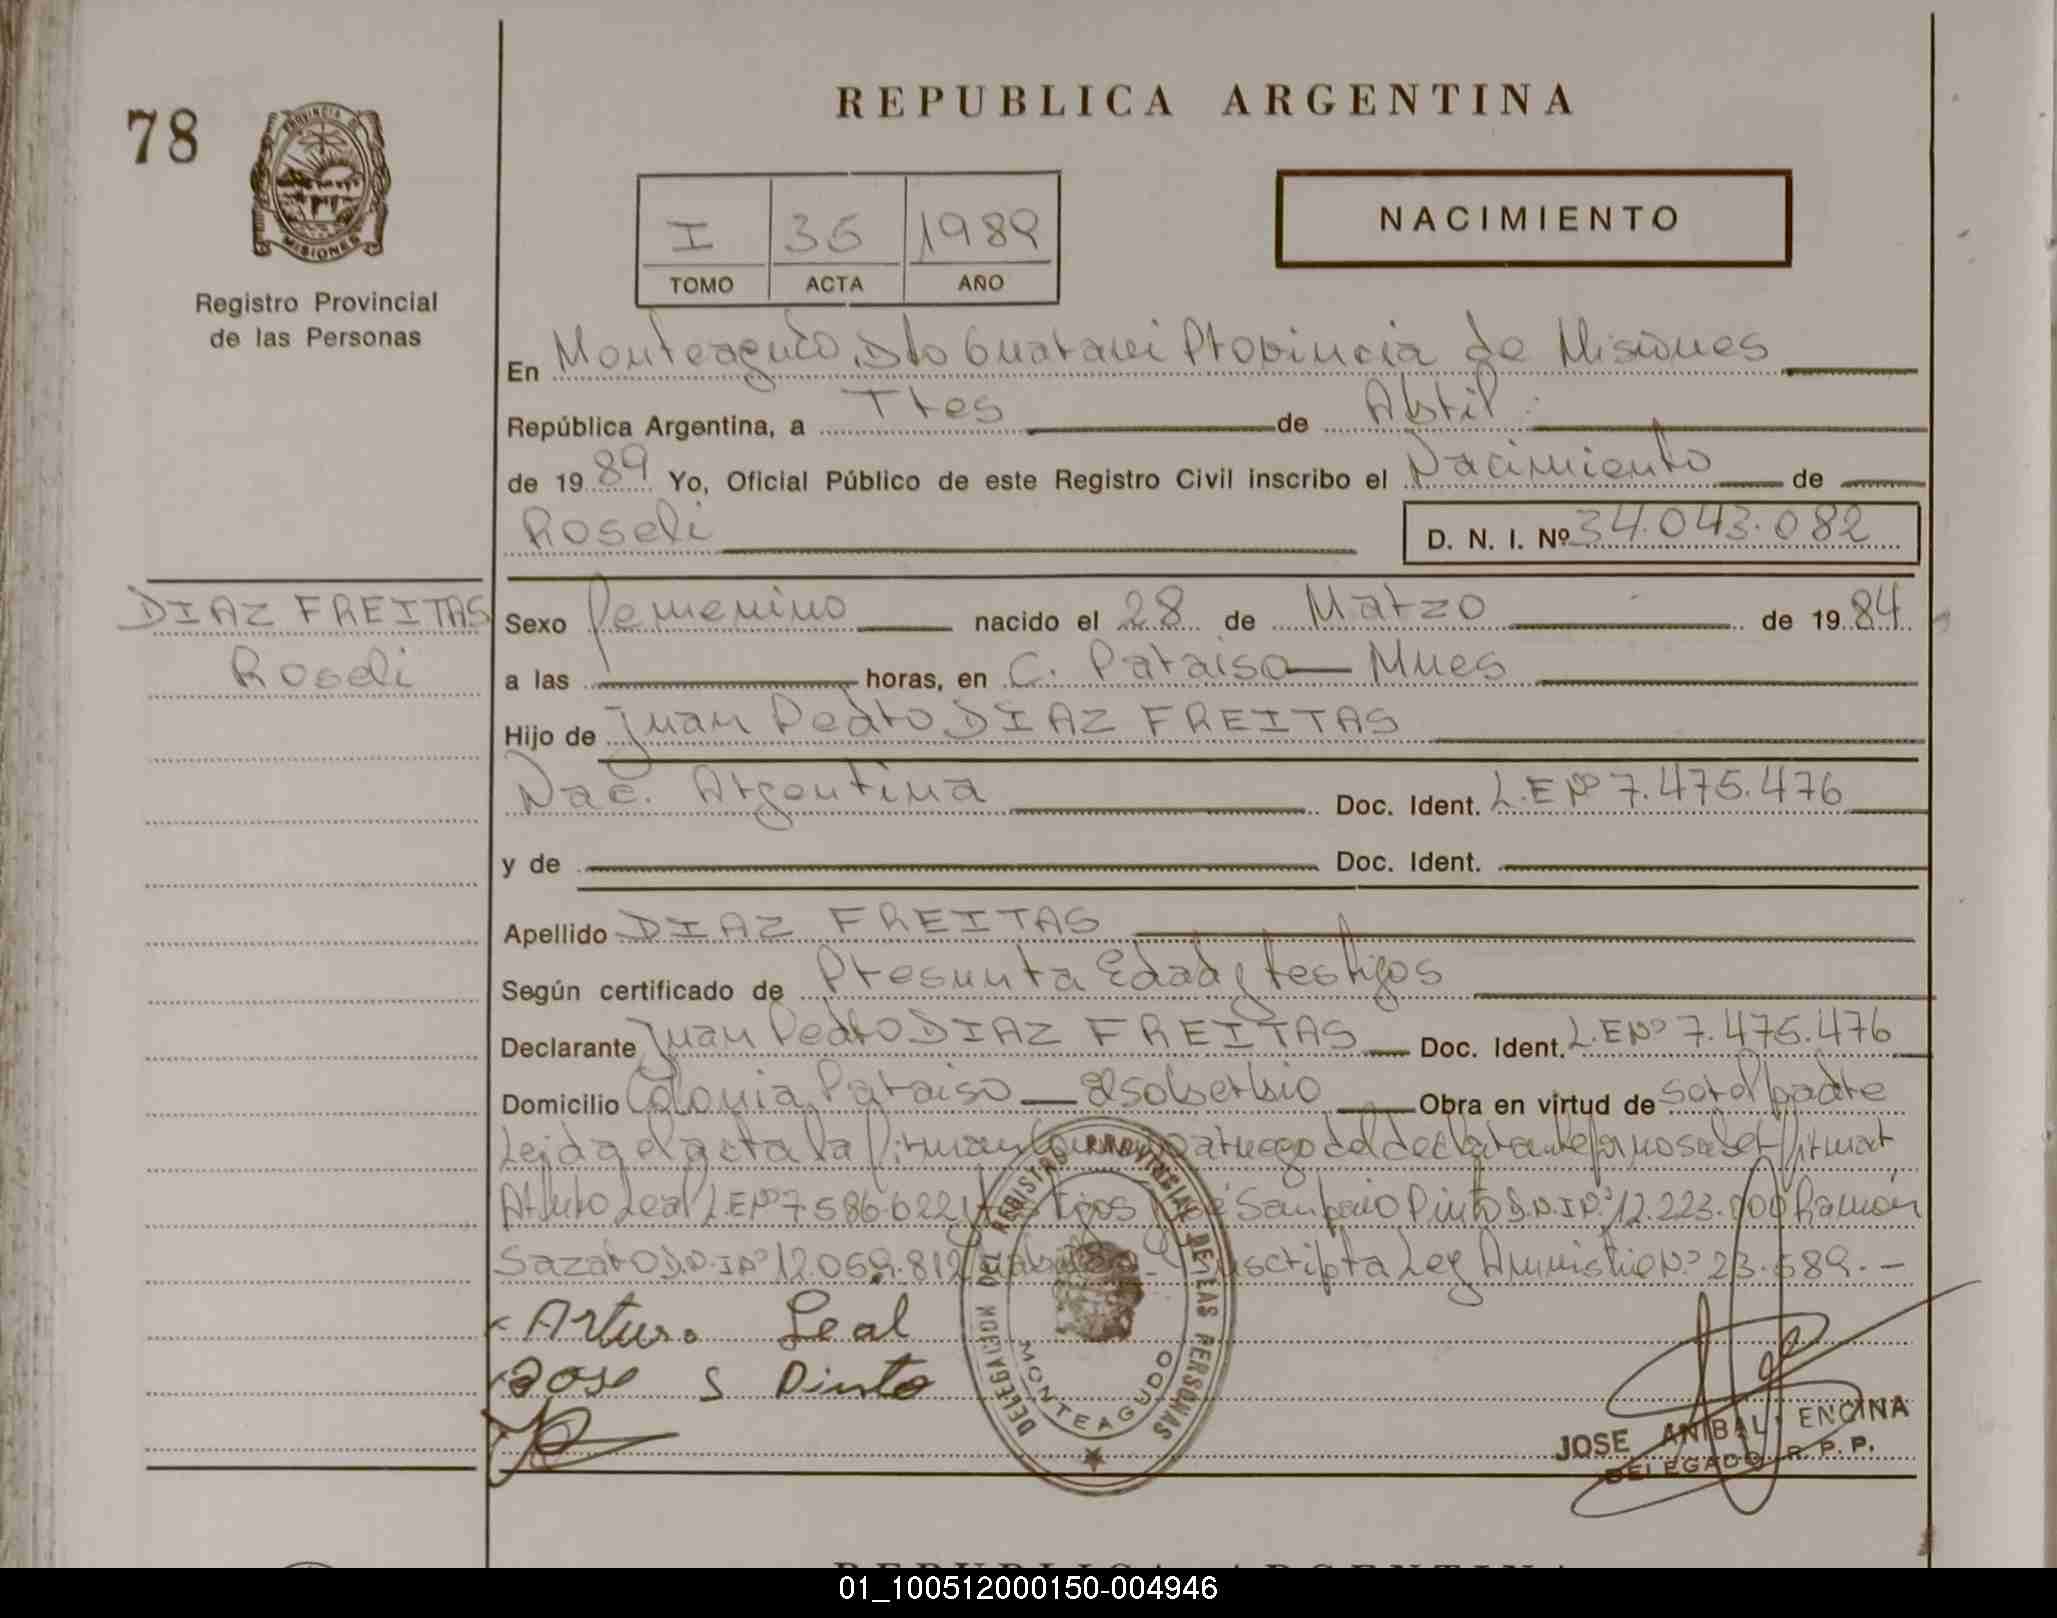 REPUBLICA ARGENTINA
78
PROVINCIA DE
MISIONES
Registro Provincial
de las Personas
I 35 1989
TOMO ACTA AÑO
NACIMIENTO
En Monteagudo, Dto Guarani Provincia de Misiones
República Argentina, a Tres de Abril
de 1989 Yo, Oficial Público de este Registro Civil inscribo el Nacimiento de
Roseli D. N. I. Nº 34.043.082
DIAZ FREITAS
Roseli
Sexo femenino nacido el 28 de Marzo de 1984
a las horas, en C. Paraiso — Mnes
Hijo de Juan Pedro DIAZ FREITAS
Nac. Argentina Doc. Ident. L.E Nº 7.475.476
y de Doc. Ident.
Apellido DIAZ FREITAS
Según certificado de Presunta Edad y testigos
Declarante Juan Pedro DIAZ FREITAS Doc. Ident. L.E Nº 7.475.476
Domicilio Colonia Paraiso — El soberbio Obra en virtud de ser el padre
Leida el acta la firman a ruego del declarante por no saber firmar
Arturo Leal L.E Nº 7.586.622 y testigos José Sampaio Pinto D.N.I Nº 12.223.000 Ramón
D.N.I Nº 12.059.812 inscripta Ley Amnistie Nº 23.589.-
Arturo Leal
Jose S Pinto
DELEGACION DEL REGISTRO PROVINCIAL DE LAS PERSONAS
MONTEAGUDO
JOSE ANIBAL ENCINA
DELEGADO R. P. P.
REPUBLICA ARGENTINA
01_100512000150-004946